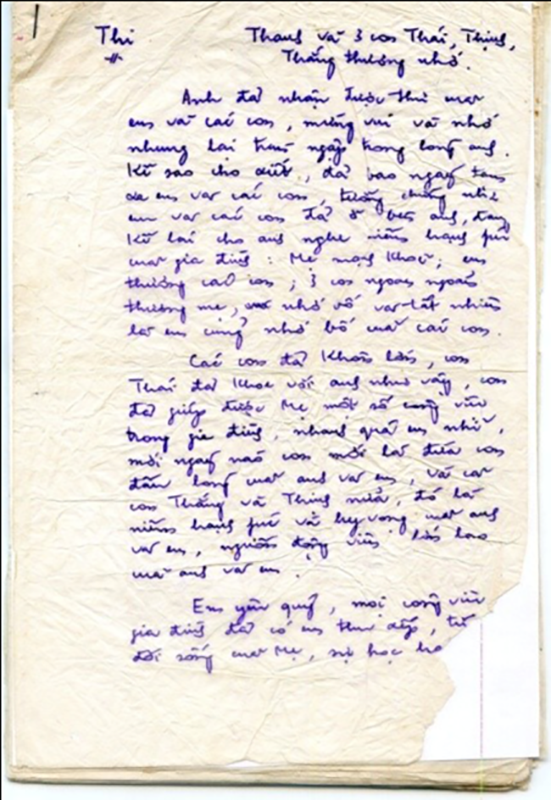 Thi
Thanh và 3 con Thái, Thịnh,
Thắng thương nhớ.
Anh đã nhận được thư của
em và các con, mừng vui và nhớ
nhung lại tràn ngập trong lòng anh.
Kể sao cho xiết, đã bao ngày
em và các con, tưởng chừng như
em và các con đã ở bên anh, đang
kể lại cho anh nghe niềm hạnh phúc
của gia đình: Mẹ mạnh khoẻ; em
thương các con; 3 con ngoan ngoãn
thương mẹ, nhớ bố và tất nhiên
là em cũng nhớ bố của các con.
Các con đã khôn lớn, con
Thái đã khoe với anh như vậy, con
đã giúp được Mẹ một số công việc
trong gia đình, nhanh quá em nhỉ,
mới ngày nào con mới là đứa con
đầu lòng của anh và em, và cả
con Thắng và Thịnh nữa, đó là
niềm hạnh phúc và hy vọng của anh
và em, nguồn động viên lớn lao
của anh và em.
Em yêu quý, mọi công việc
gia đình đã có em thu xếp, từ
đời sống của Mẹ, sự học